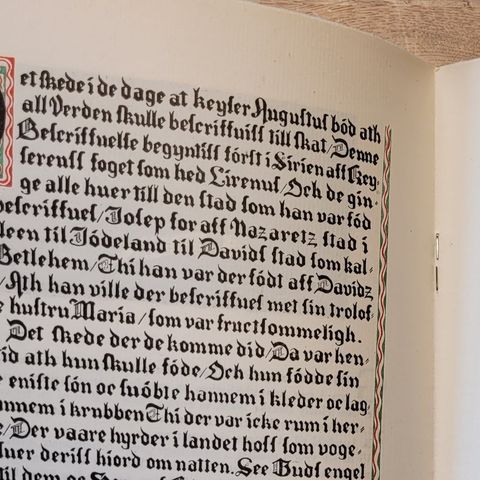 et skede i de dage at keyser Augustus bód ath
all Verden skulle bescriffuiss till skat/Denne
Bescriffuelse begyntiss fórst i Sirien aff Key-
serenss foget som hed Cirenus/Och de gin-
ge alle huer till den stad som han var fód
bescriffues/Josep for aff Nazaretz stad i
leen til Jódeland til Davids stad som kal-
Betlehem/Thi han var der fódt aff Davidz
/Ath han ville der bescriffues met sin trolof-
hustru Maria/som var fructsommeligh.
Det skede der de komme did/Da var hen-
id ath hun skulle fóde/Och hun fódde sin
eniste són oc suóbte hannem i kleder oc lag-
nnem i krubben Thi der var icke rum i her-
/Der vaare hyrder i landet hoss som voge-
uer deriss hiord om natten. See Guds engel
til dem oc